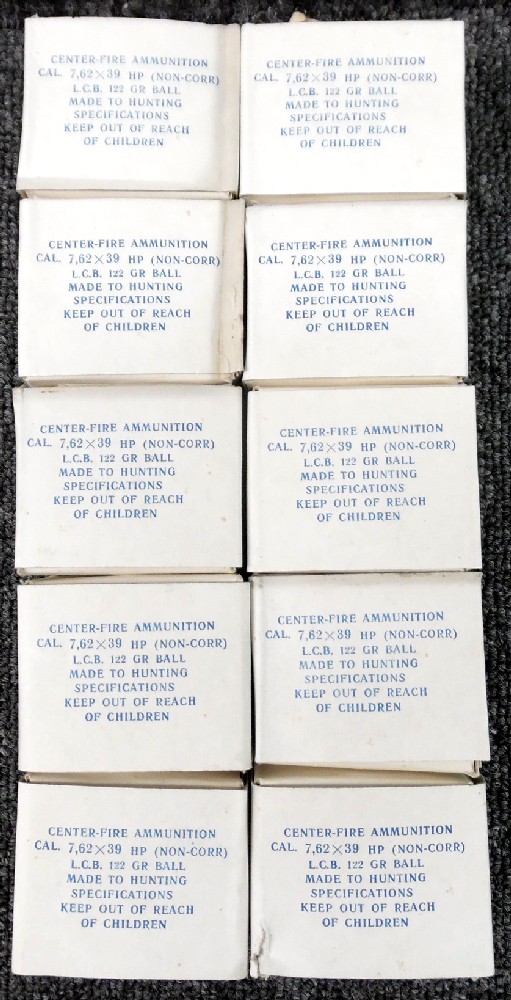 CENTER-FIRE AMMUNITION
CAL. 7,62×39 HP (NON-CORR)
L.C.B. 122 GR BALL
MADE TO HUNTING
SPECIFICATIONS
KEEP OUT OF REACH
OF CHILDREN
CENTER-FIRE AMMUNITION
CAL. 7,62×39 HP (NON-CORR)
L.C.B. 122 GR BALL
MADE TO HUNTING
SPECIFICATIONS
KEEP OUT OF REACH
OF CHILDREN
CENTER-FIRE AMMUNITION
CAL. 7,62×39 HP (NON-CORR)
L.C.B. 122 GR BALL
MADE TO HUNTING
SPECIFICATIONS
KEEP OUT OF REACH
OF CHILDREN
CENTER-FIRE AMMUNITION
CAL. 7,62×39 HP (NON-CORR)
L.C.B. 122 GR BALL
MADE TO HUNTING
SPECIFICATIONS
KEEP OUT OF REACH
OF CHILDREN
CENTER-FIRE AMMUNITION
CAL. 7,62×39 HP (NON-CORR)
L.C.B. 122 GR BALL
MADE TO HUNTING
SPECIFICATIONS
KEEP OUT OF REACH
OF CHILDREN
CENTER-FIRE AMMUNITION
CAL. 7,62×39 HP (NON-CORR)
L.C.B. 122 GR BALL
MADE TO HUNTING
SPECIFICATIONS
KEEP OUT OF REACH
OF CHILDREN
CENTER-FIRE AMMUNITION
CAL. 7,62×39 HP (NON-CORR)
L.C.B. 122 GR BALL
MADE TO HUNTING
SPECIFICATIONS
KEEP OUT OF REACH
OF CHILDREN
CENTER-FIRE AMMUNITION
CAL. 7,62×39 HP (NON-CORR)
L.C.B. 122 GR BALL
MADE TO HUNTING
SPECIFICATIONS
KEEP OUT OF REACH
OF CHILDREN
CENTER-FIRE AMMUNITION
CAL. 7,62×39 HP (NON-CORR)
L.C.B. 122 GR BALL
MADE TO HUNTING
SPECIFICATIONS
KEEP OUT OF REACH
OF CHILDREN
CENTER-FIRE AMMUNITION
CAL. 7,62×39 HP (NON-CORR)
L.C.B. 122 GR BALL
MADE TO HUNTING
SPECIFICATIONS
KEEP OUT OF REACH
OF CHILDREN